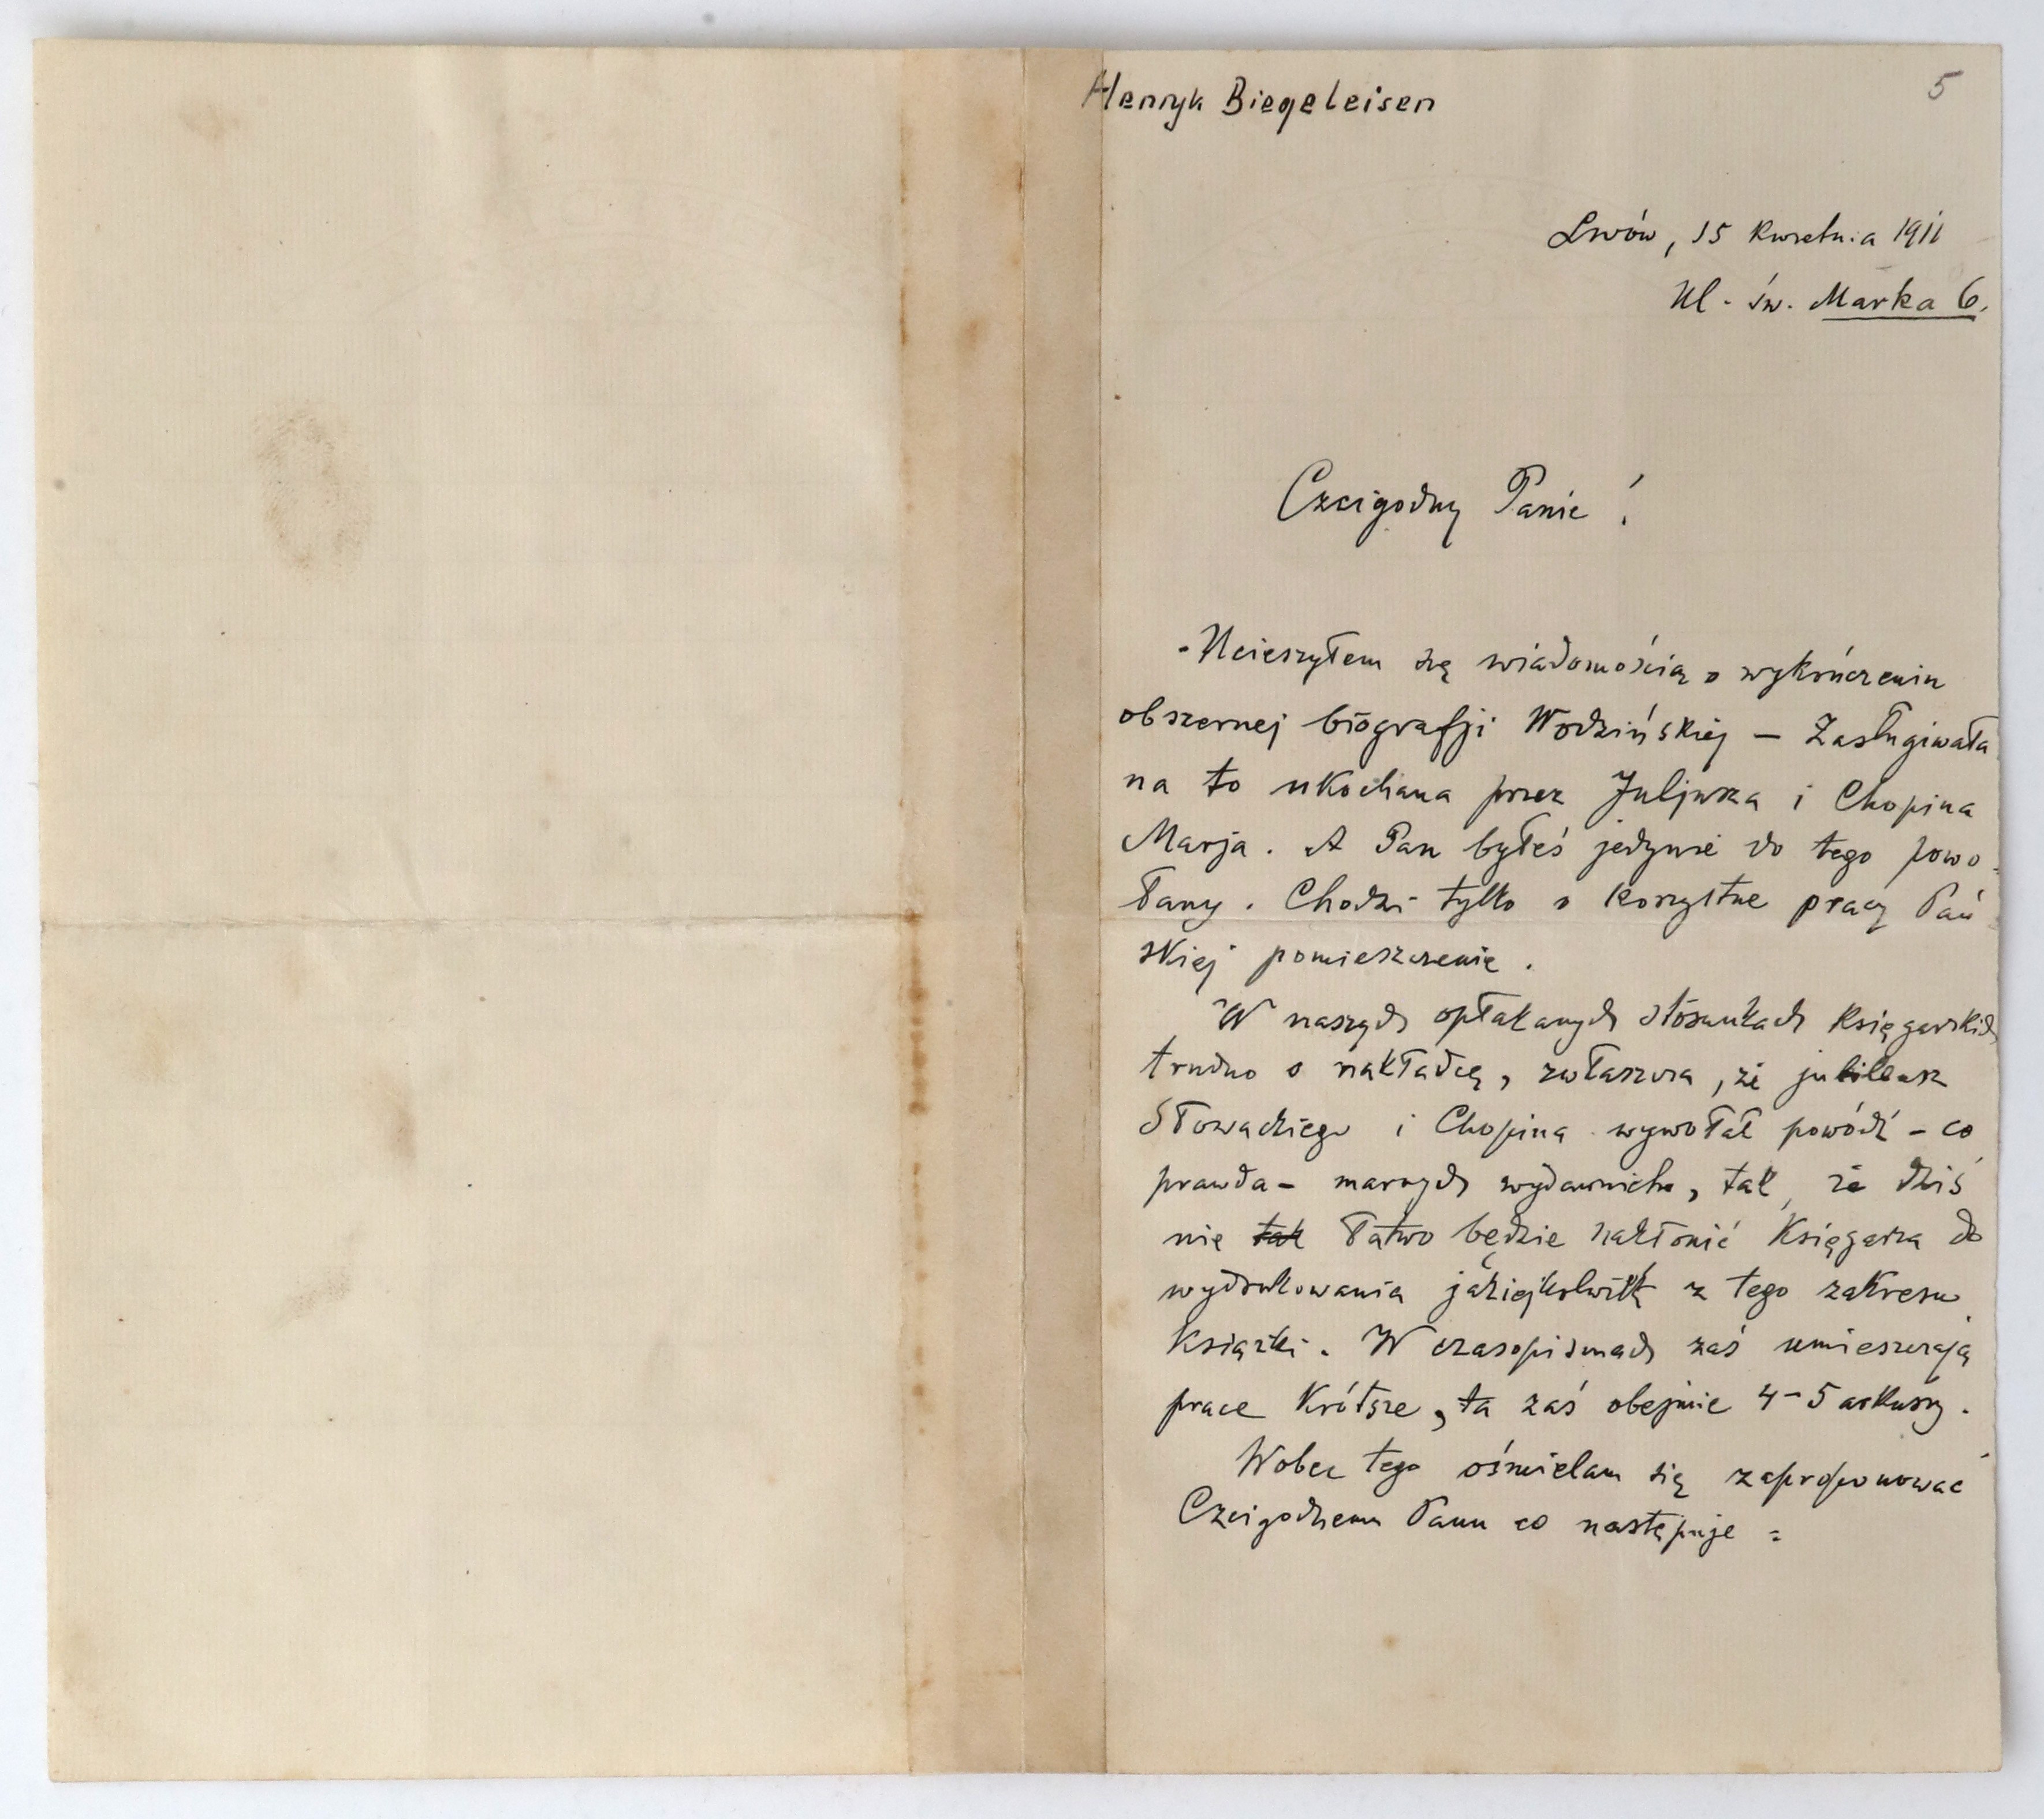 Henryk Biegeleisen
5
Lwów, 15 kwietnia 1911
Ul. św. Marka 6.
Czcigodny Panie!
Ucieszyłem się wiadomością o wykończeniu
obszernej biografji Wodzińskiej – Zasługiwała
na to ukochana przez Juljusza i Chopina
Marja. A Pan byłeś jedynie do tego powo-
łany. Chodzi tylko o korzystne pracy Pań
skiej pomieszczenie.
W naszych opłakanych stosunkach księgarskich
trudno o nakładcę, zwłaszcza, że jubileusz
Słowackiego i Chopina wywołał powódź – co
prawda – marnych wydawnictw, tak, że dziś
nie tak łatwo będzie nakłonić księgarza do
wydrukowania jakiejkolwiek z tego zakresu
książki. W czasopismach zaś umieszczają
prace krótsze, ta zaś obejmie 4–5 arkuszy.
Wobec tego ośmielam się zaproponować
Czcigodnemu Panu co następuje: